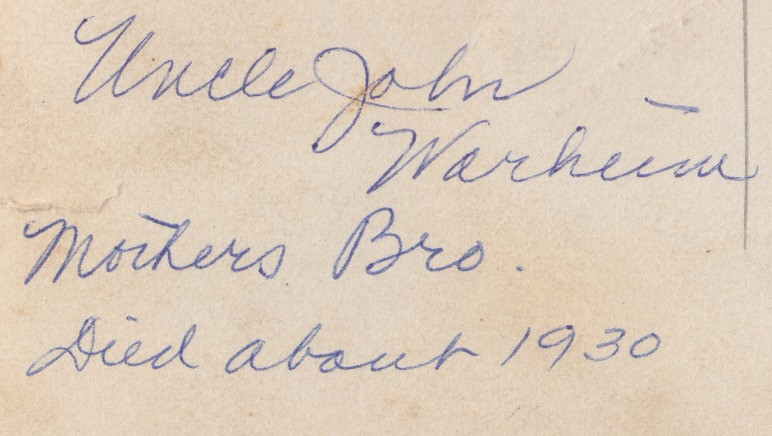 Uncle John
Warheim
Mothers Bro.
Died about 1930